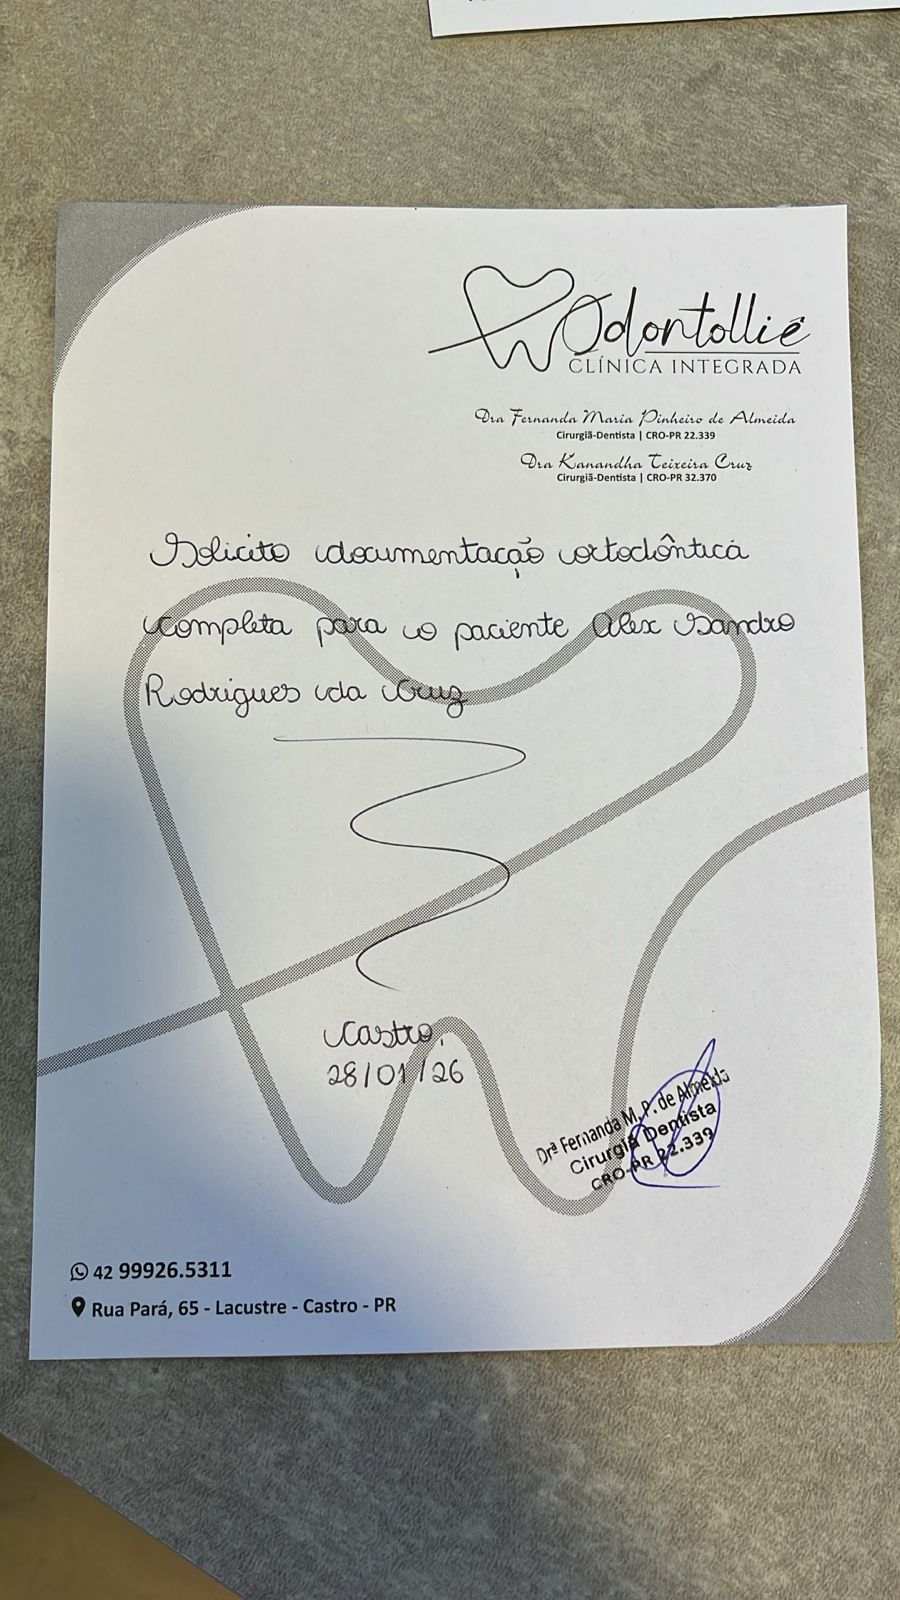 Odontolliê
CLÍNICA INTEGRADA
Dra Fernanda Maria Pinheiro de Almeida
Cirurgiã-Dentista | CRO-PR 22.339
Dra Kanandha Teixeira Cruz
Cirurgiã-Dentista | CRO-PR 32.370
Solicito documentação ortodôntica
completa para o paciente Alex Sandro
Rodrigues da Cruz
Castro,
28/01/26
Drª Fernanda M. P. de Almeida
Cirurgiã Dentista
CRO-PR 22.339
42 99926.5311
Rua Pará, 65 - Lacustre - Castro - PR